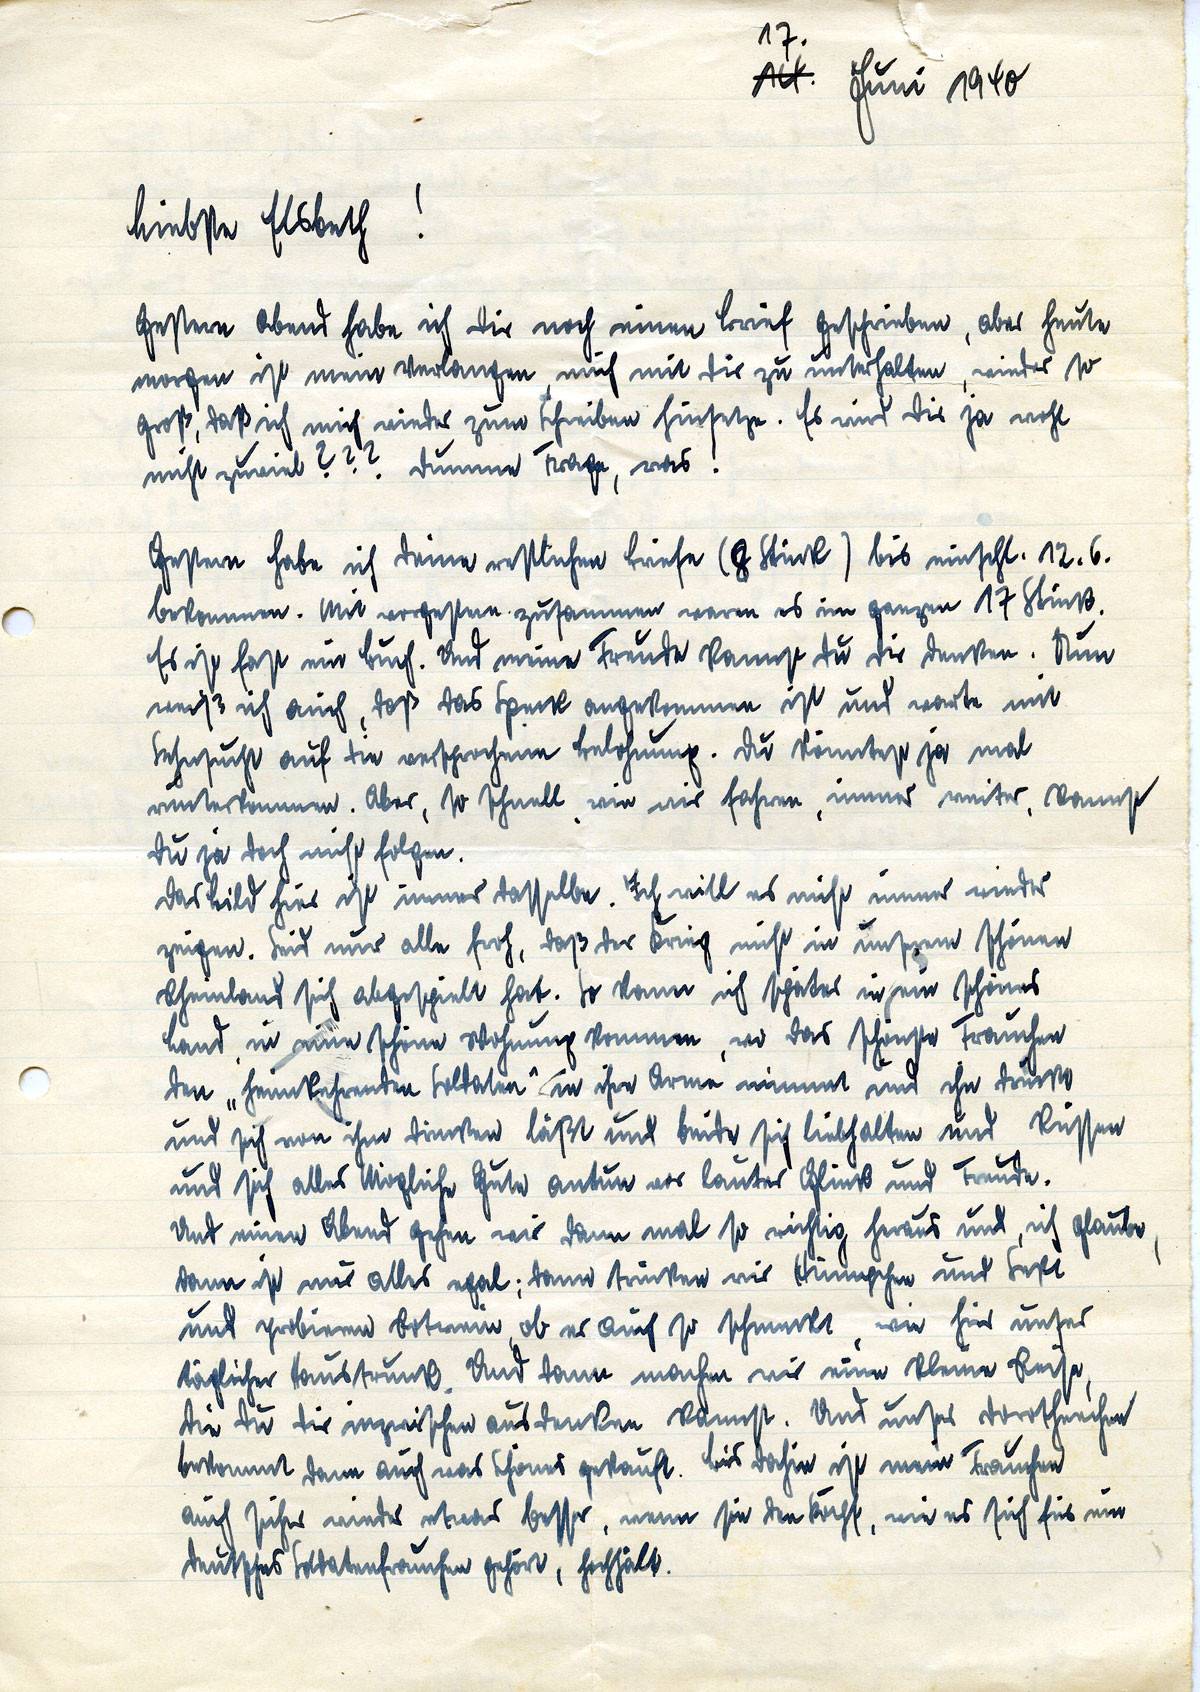 17.
14. Juni 1940
Liebste Elsbeth !
Gestern Abend habe ich Dir noch einen Brief geschrieben, aber heute
morgen ist mein Verlangen, mich mit Dir zu unterhalten, wieder so
groß, daß ich mich wieder zum Schreiben hinsetze. Es wird Dir ja wohl
nicht zuviel ??? Dumme Frage, was !
Gestern habe ich Deine restlichen Briefe (8 Stück) bis einschl. 12.6.
bekommen. Mit vorgestern zusammen waren es im ganzen 17 Stück.
Es ist fast ein Buch. Und meine Freude kannst Du Dir denken. Nun
weiß ich auch, daß das Speck angekommen ist und warte mit
Sehnsucht auf die versprochene Belohnung. Du könntest ja mal
rüberkommen. Aber, so schnell, wie wir fahren, immer weiter, kannst
Du ja doch nicht folgen.
Das Bild hier ist immer dasselbe. Ich will es nicht immer wieder
zeigen. Seid nur alle froh, daß der Krieg nicht in unserem schönen
Rheinland sich abgespielt hat. So kann ich später in ein schönes
Land, in eine schöne Wohnung kommen, wo das schönste Frauchen
den „heimkehrenden Soldaten" in ihre Arme nimmt und ihn drückt
und sich von ihm drücken läßt und beide sich liebhalten und küssen
und sich alles Mögliche Gute antun vor lauter Glück und Freude.
Und einen Abend gehen wir dann mal so richtig heraus und, ich glaube,
dann ist mir alles egal; dann trinken wir und Sekt
und probieren Rotwein, ob er auch so schmeckt, wie hier unser
täglicher Haustrunk. Und dann machen wir eine kleine Reise,
die Du Dir inzwischen ausdenken kannst. Und unser Dorotheechen
bekommt dann auch was Schönes gekauft. Bis dahin ist mein Frauchen
auch sicher wieder etwas besser, wenn sie den Kopf, wie es sich für ein
deutsches Soldatenfrauchen gehört, hochhält.